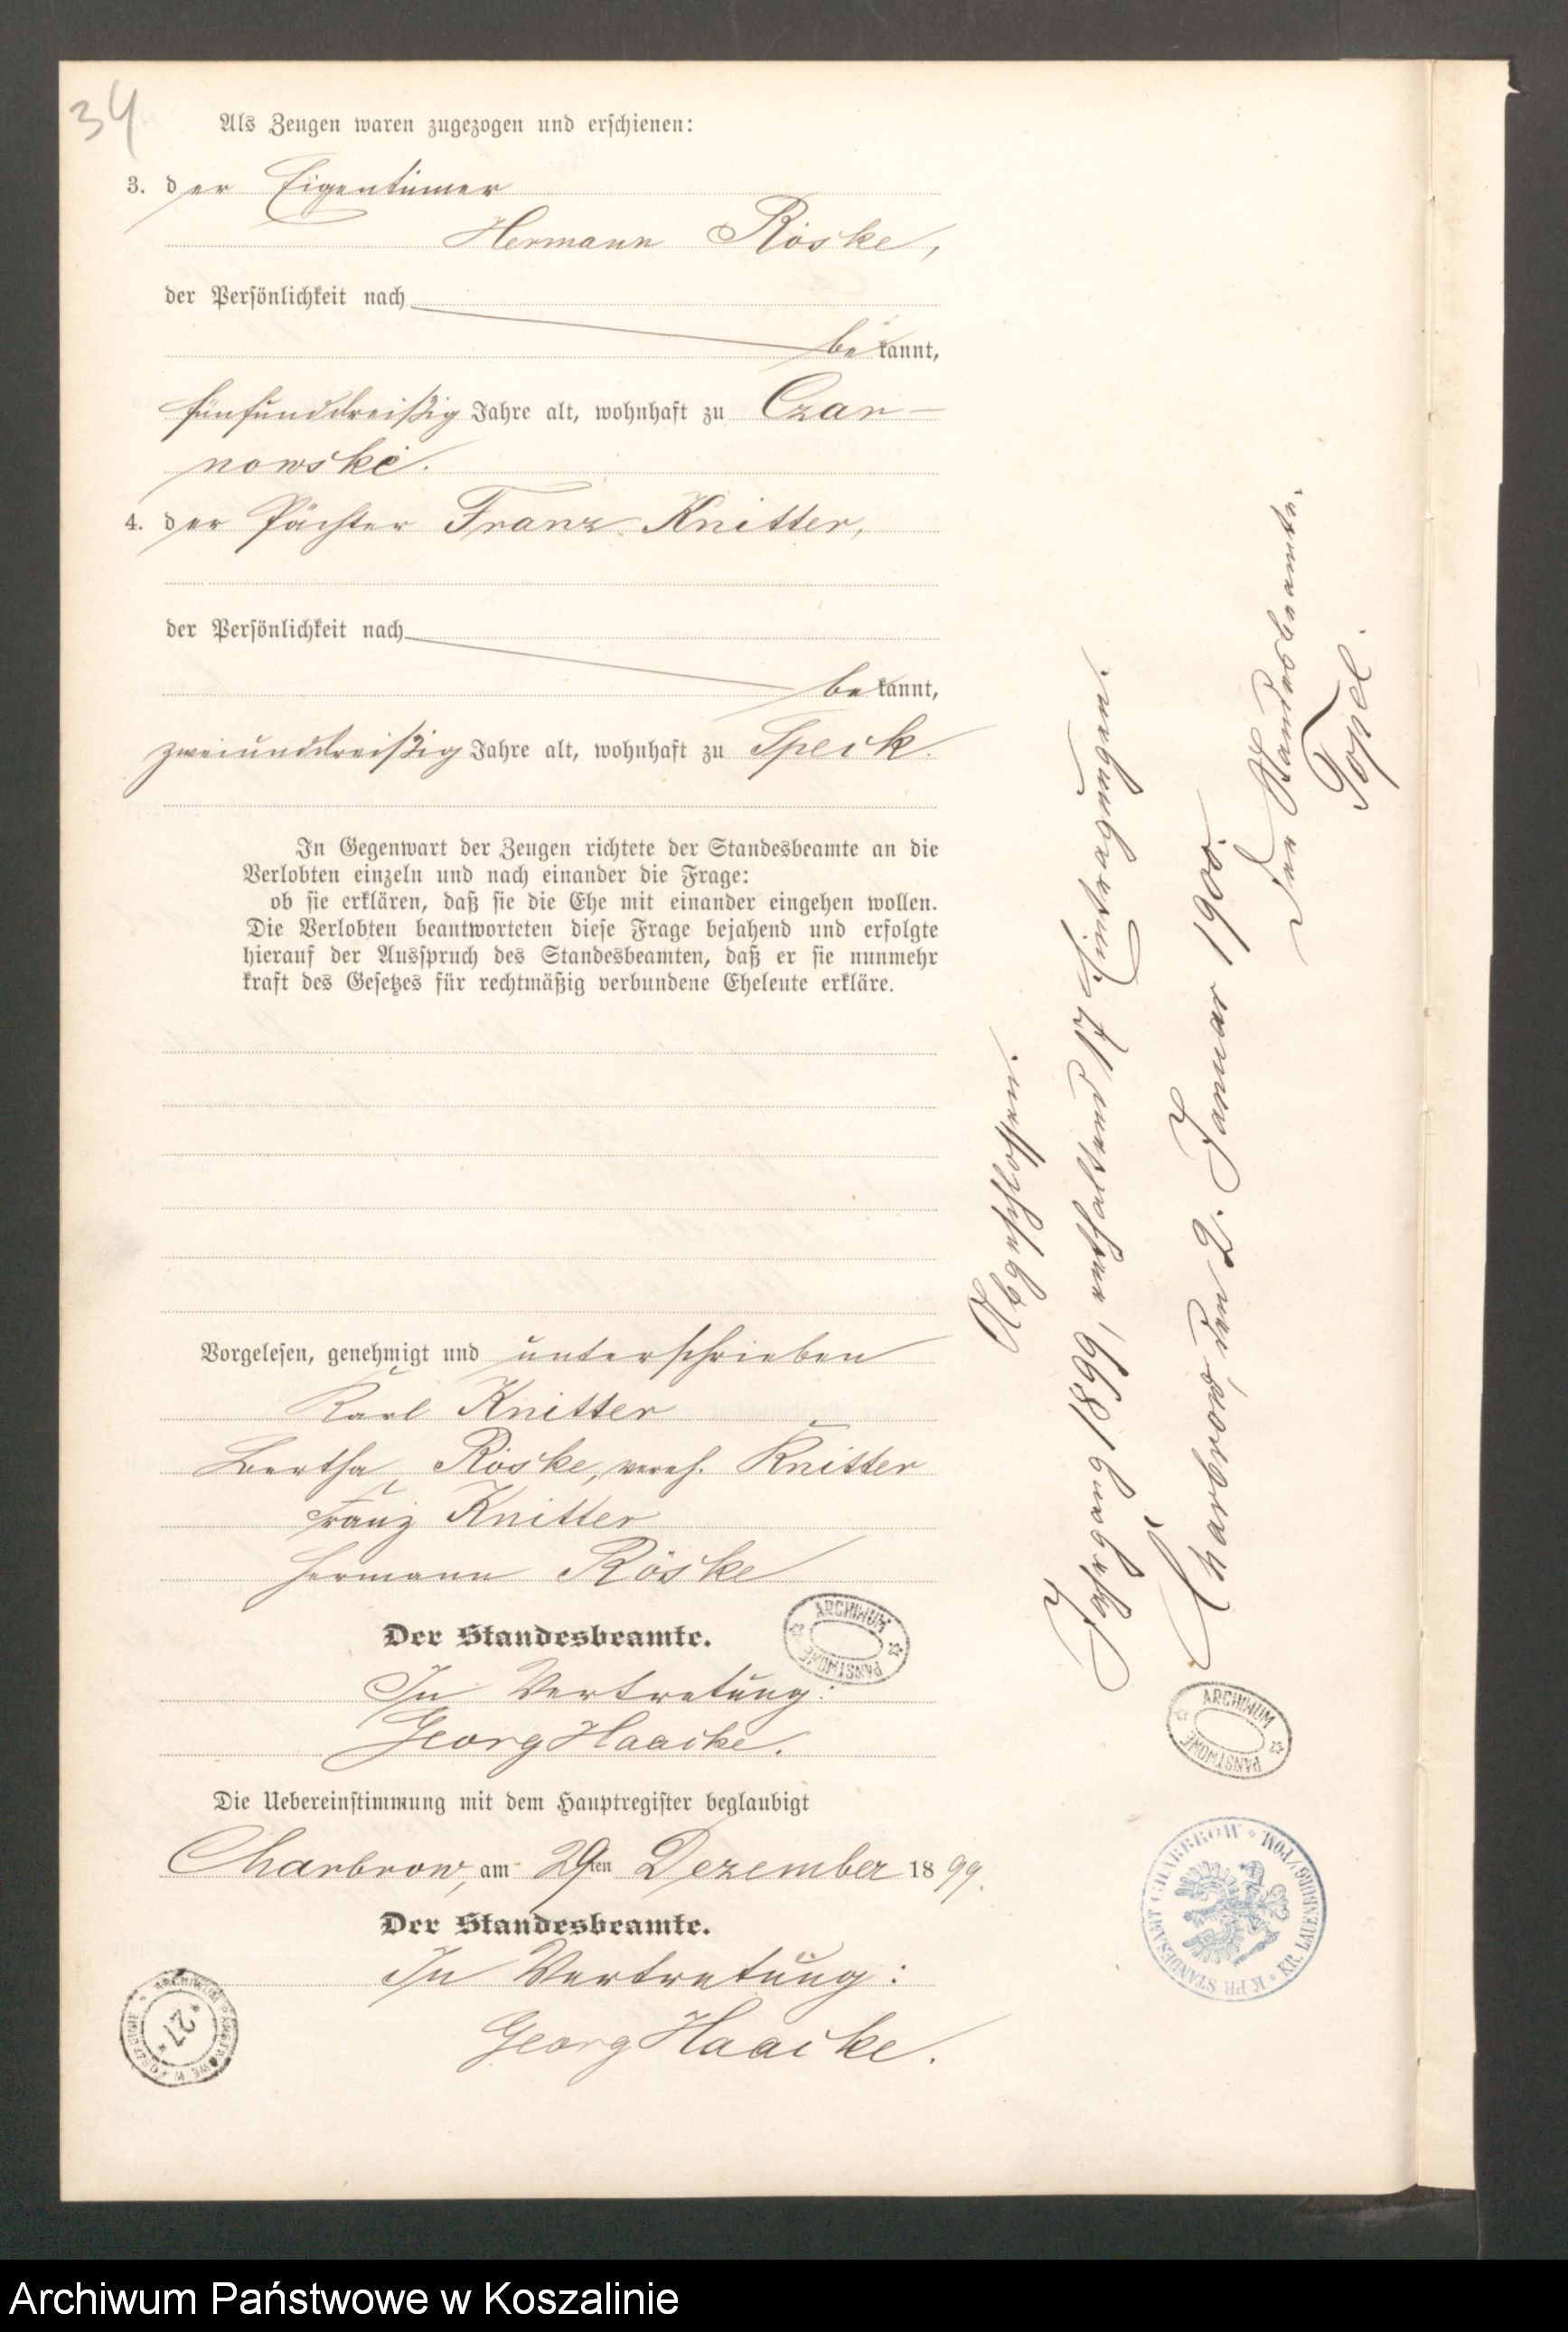 34
Als Zeugen waren zugezogen und erschienen:
3. der Eigentümer
Hermann Röske,
der Persönlichkeit nach
bekannt,
fünfunddreißig Jahre alt, wohnhaft zu Czar-
nowske.
4. der Pächter Franz Knitter,
der Persönlichkeit nach
bekannt,
zweiunddreißig Jahre alt, wohnhaft zu Speck.
In Gegenwart der Zeugen richtete der Standesbeamte an die
Verlobten einzeln und nach einander die Frage:
ob sie erklären, daß sie die Ehe mit einander eingehen wollen.
Die Verlobten beantworteten diese Frage bejahend und erfolgte
hierauf der Ausspruch des Standesbeamten, daß er sie nunmehr
kraft des Gesetzes für rechtmäßig verbundene Eheleute erkläre.
Vorgelesen, genehmigt und unterschrieben
Karl Knitter
Bertha Röske, vereh. Knitter
Franz Knitter
Hermann Röske
Der Standesbeamte.
In Vertretung:
Georg Haacke.
Die Uebereinstimmung mit dem Hauptregister beglaubigt
Charbrow, am 29ten Dezember 1899.
Der Standesbeamte.
In Vertretung:
Georg Haacke.
Abgeschlossen.
Jahrgang 1899, enthaltend 17 Eintragungen.
Charbrow, den 2. Januar 1900.
Der Standesbeamte.
Topel.
ARCHIWUM PAŃSTWOWE
ARCHIWUM PAŃSTWOWE
K. PR. STANDESAMT CHARBROW * KR. LAUENBURG/POM.
ARCHIWUM PAŃSTWOWE W KOSZALINIE
* 27 *
Archiwum Państwowe w Koszalinie